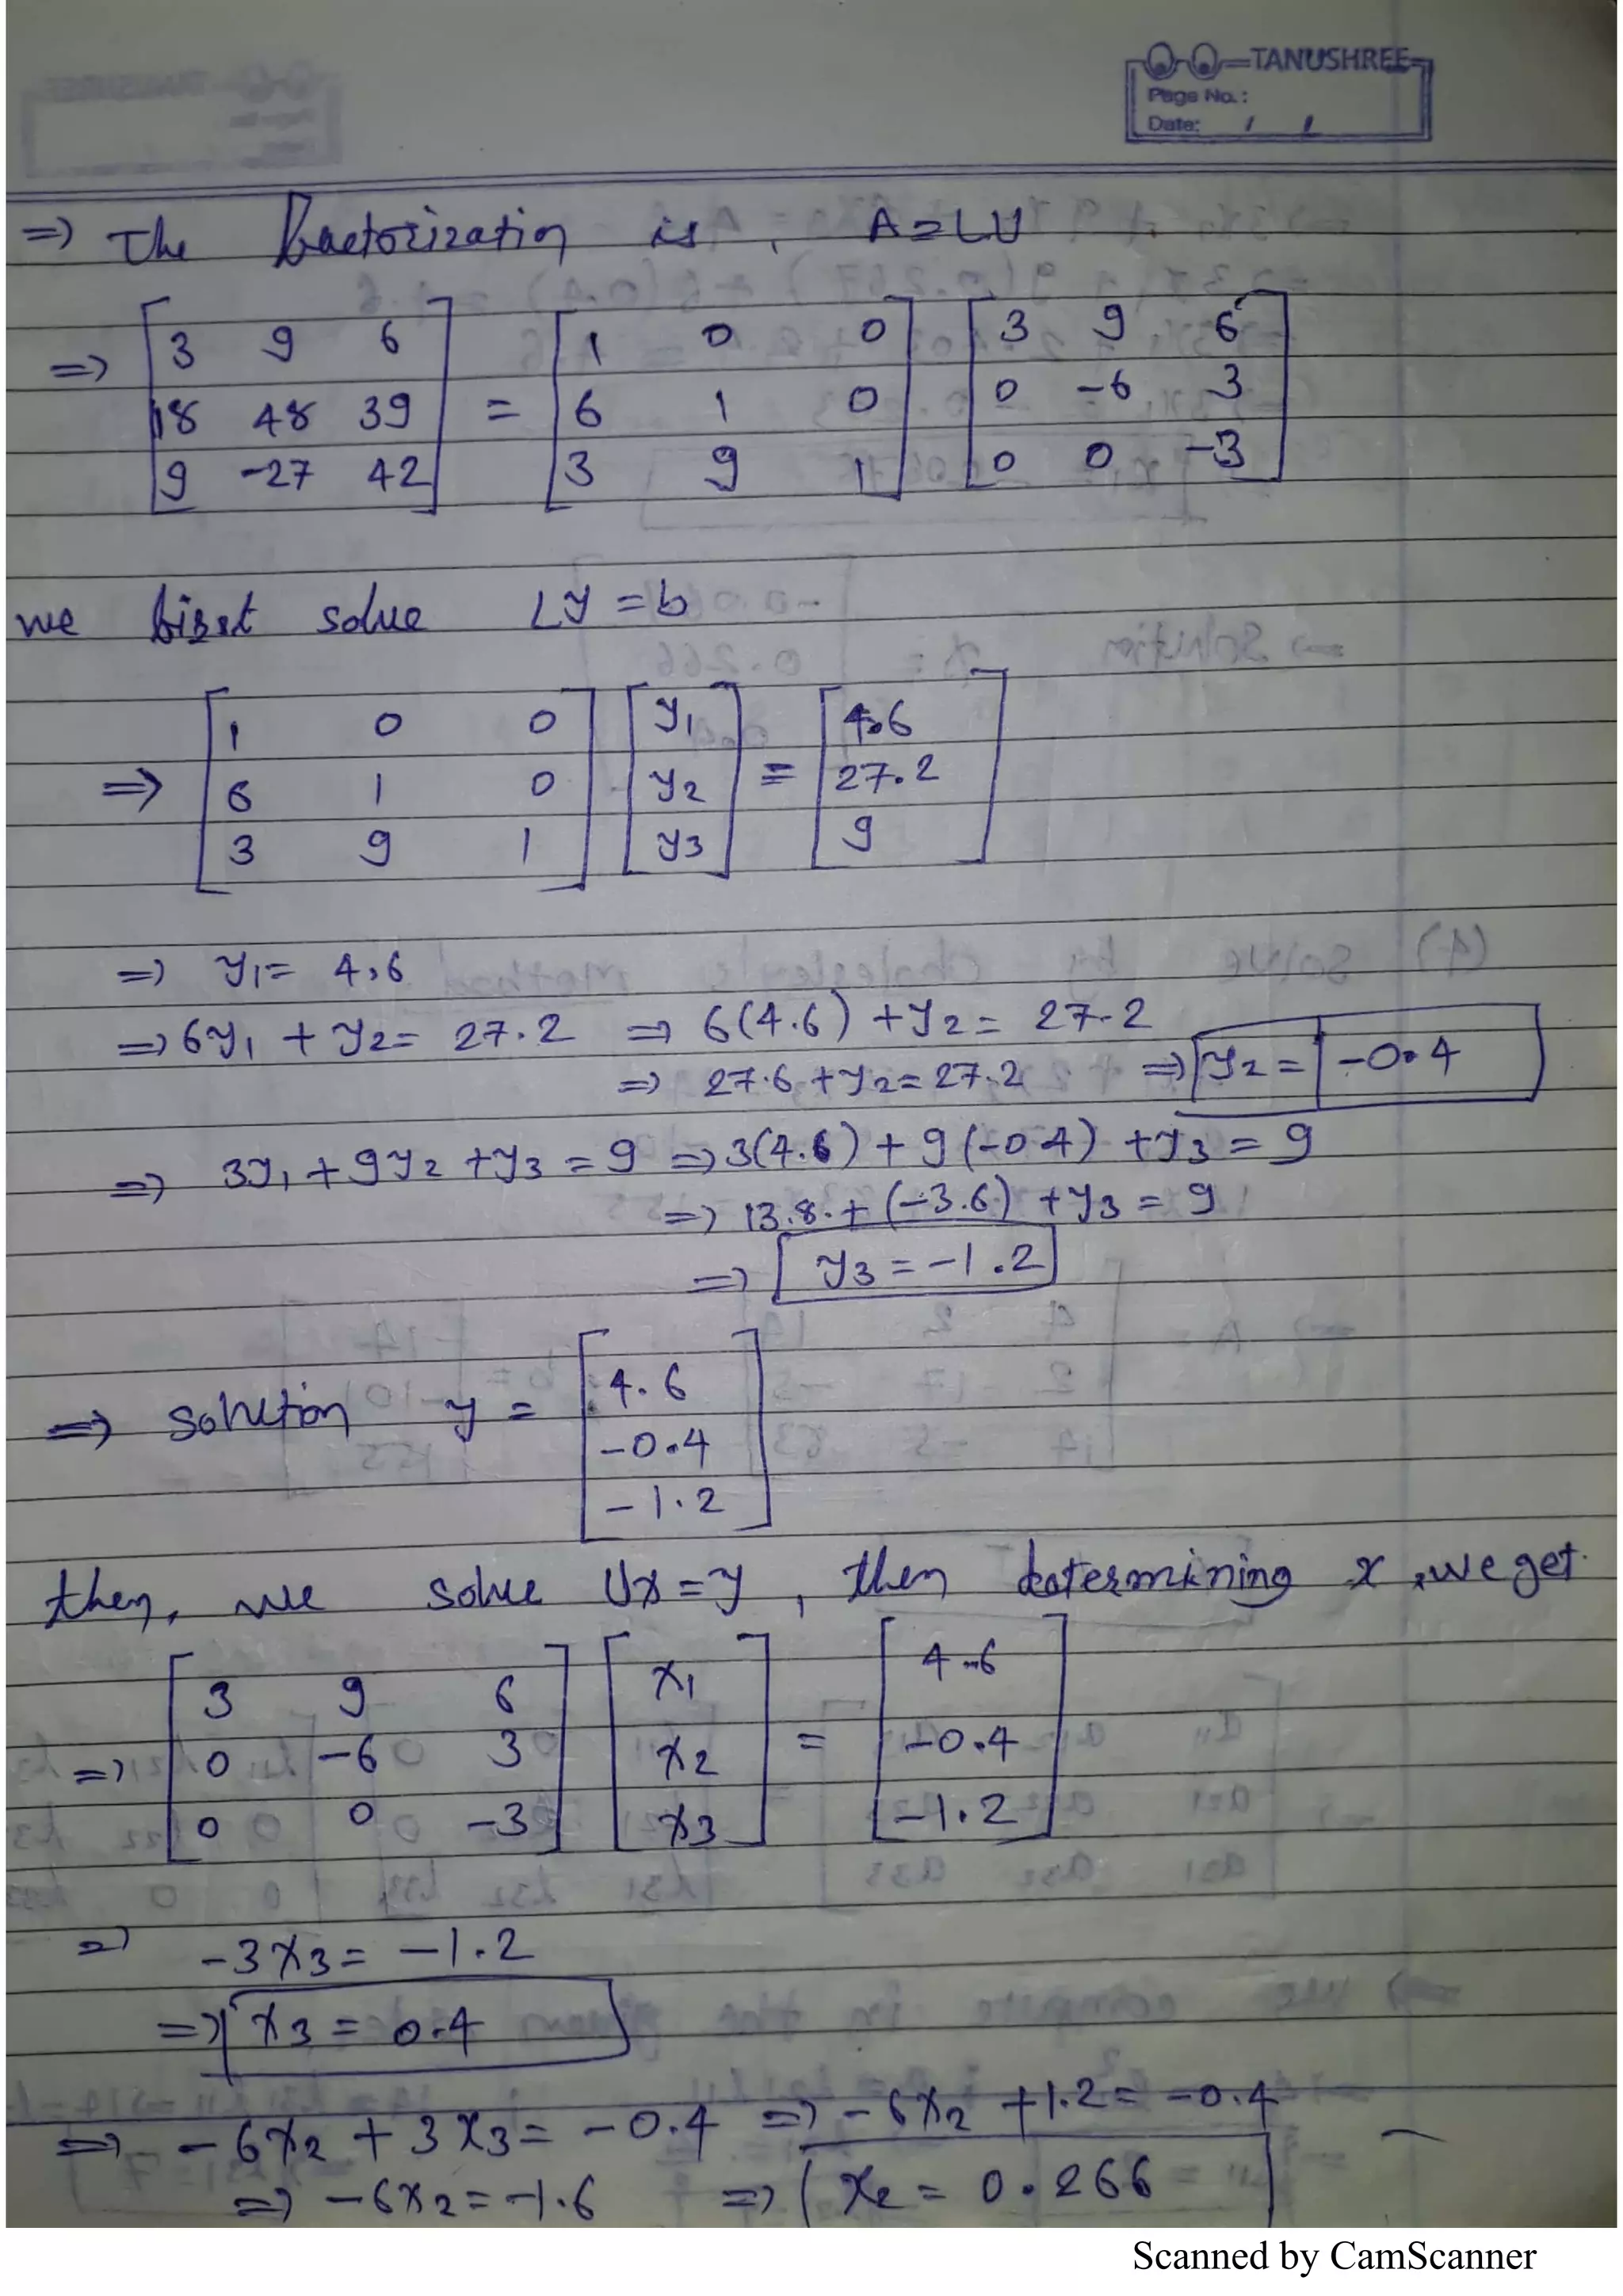 TANUSHREE
Page No.:
Date: / /
=> The factorization is, A=LU
=> [3 9 6] = [1 0 0] [3 9 6]
[18 48 39] [6 1 0] [0 -6 3]
[9 -27 42] [3 9 1] [0 0 -3]
we first solve Ly=b
=> [1 0 0] [y1] = [4.6]
[6 1 0] [y2] [27.2]
[3 9 1] [y3] [9]
=> y1= 4.6
=> 6y1 + y2= 27.2 => 6(4.6) +y2= 27.2
=> 27.6 +y2= 27.2 => y2= -0.4
=> 3y1+9y2+y3=9 => 3(4.6) + 9(-0.4) +y3=9
=> 13.8 + (-3.6) +y3=9
=> y3=-1.2
=> solution y = [4.6]
[-0.4]
[-1.2]
then, we solve Ux=y, then determining x, we get.
=> [3 9 6] [x1] = [4.6]
[0 -6 3] [x2] [-0.4]
[0 0 -3] [x3] [-1.2]
=> -3x3= -1.2
=> x3= 0.4
=> -6x2 + 3x3= -0.4 => -6x2 +1.2= -0.4
=> -6x2=-1.6 => x2= 0.266
Scanned by CamScanner